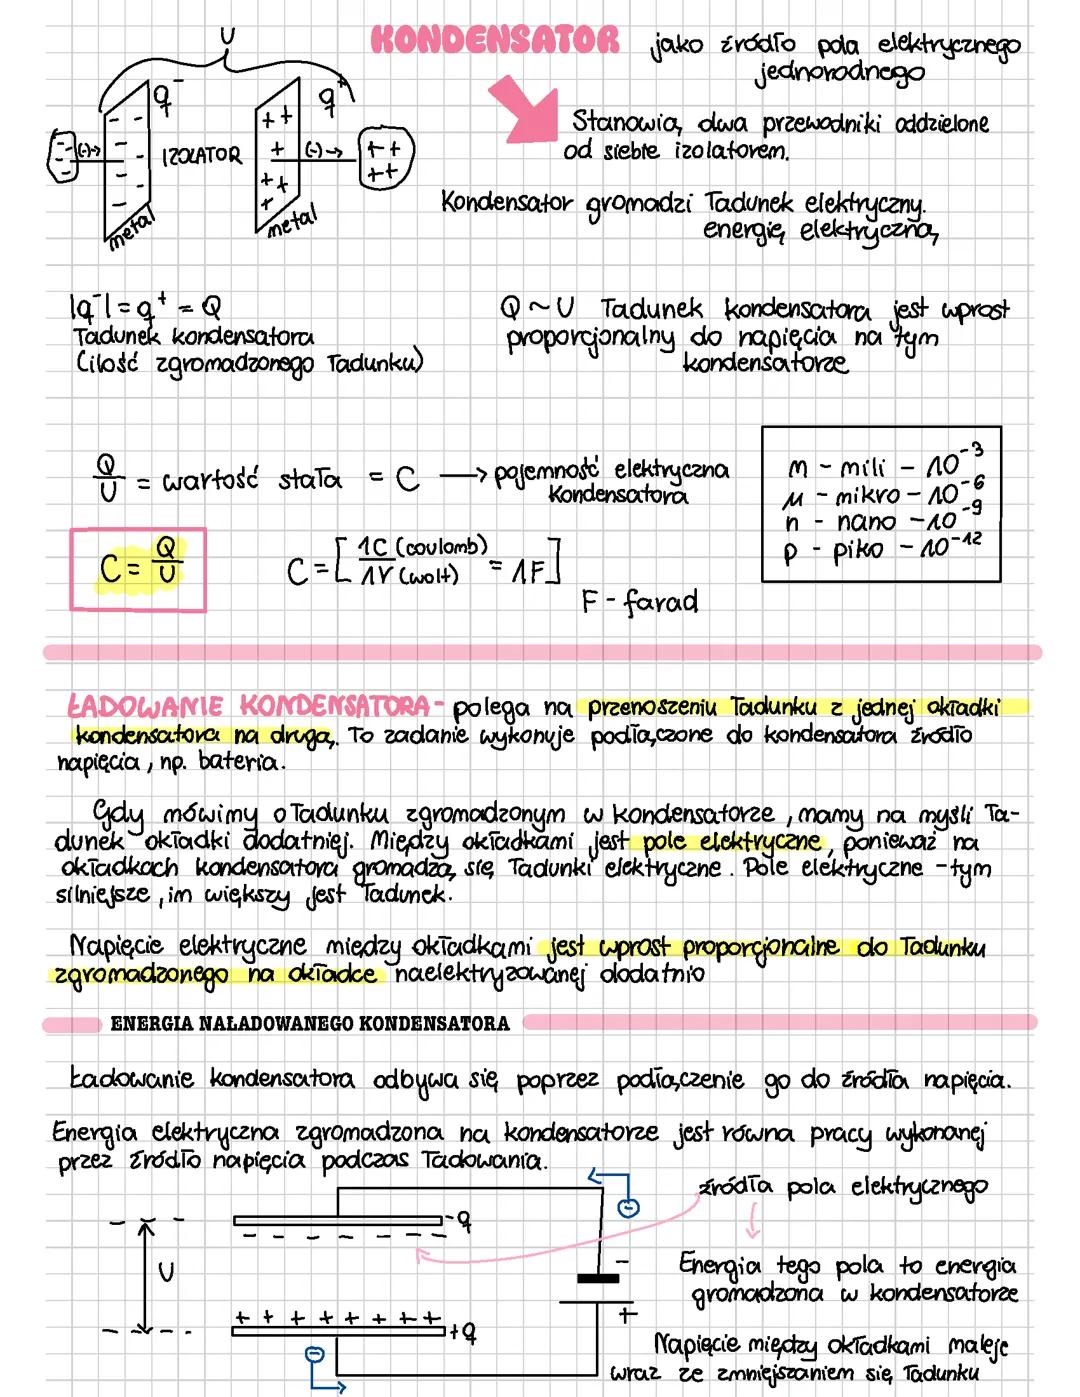 U
KONDENSATOR jako źródło pola elektrycznego
jednorodnego
q⁻ q⁺
Stanowią dwa przewodniki oddzielone
od siebie izolatorem.
(-)→ IZOLATOR (-)→
metal metal
Kondensator gromadzi ładunek elektryczny.
energię elektryczną
|q⁻| = q⁺ = Q
Ładunek kondensatora
(ilość zgromadzonego ładunku)
Q ~ U Ładunek kondensatora jest wprost
proporcjonalny do napięcia na tym
kondensatorze
Q/U = wartość stała = C → pojemność elektryczna
kondensatora
m - mili - 10⁻³
μ - mikro - 10⁻⁶
n - nano - 10⁻⁹
p - piko - 10⁻¹²
C = Q/U
C = [1C (coulomb) / 1V (wolt) = 1F]
F - farad
ŁADOWANIE KONDENSATORA - polega na przenoszeniu ładunku z jednej okładki
kondensatora na drugą. To zadanie wykonuje podłączone do kondensatora źródło
napięcia, np. bateria.
Gdy mówimy o ładunku zgromadzonym w kondensatorze, mamy na myśli ła-
dunek okładki dodatniej. Między okładkami jest pole elektryczne, ponieważ na
okładkach kondensatora gromadzą się ładunki elektryczne. Pole elektryczne - tym
silniejsze, im większy jest ładunek.
Napięcie elektryczne między okładkami jest wprost proporcjonalne do ładunku
zgromadzonego na okładce naelektryzowanej dodatnio
ENERGIA NAŁADOWANEGO KONDENSATORA
Ładowanie kondensatora odbywa się poprzez podłączenie go do źródła napięcia.
Energia elektryczna zgromadzona na kondensatorze jest równa pracy wykonanej
przez źródło napięcia podczas ładowania.
źródła pola elektrycznego
-q
U
Energia tego pola to energia
gromadzona w kondensatorze
+q
Napięcie między okładkami maleje
wraz ze zmniejszaniem się ładunku